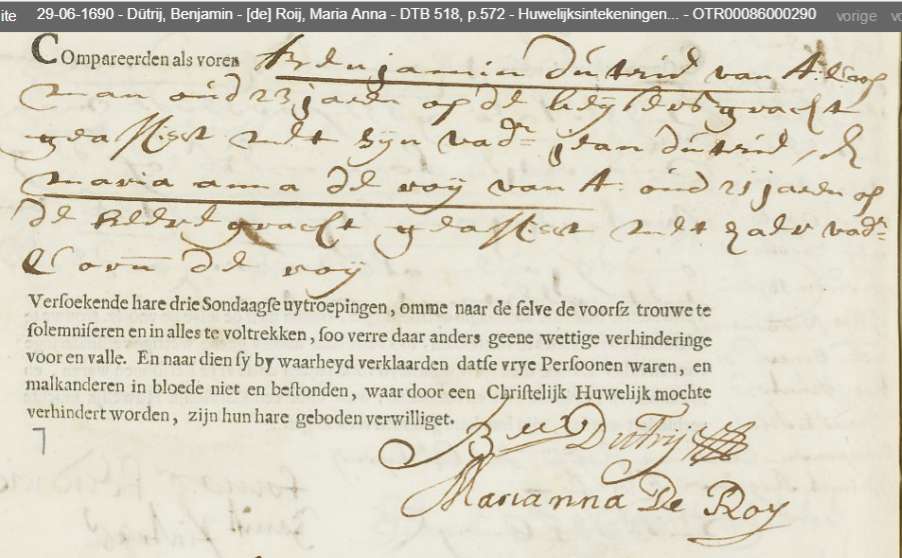 ite 29-06-1690 - Dütrij, Benjamin - [de] Roij, Maria Anna - DTB 518, p.572 - Huwelijksintekeningen... - OTR00086000290 vorige vo
Compareerden als voren Benjamin dutrid van A. Coop
man oud 23 jaren op de keysersgracht
geassisteert met syn vadr jean dutrid, &
maria anna de roy van A. oud 21 jaren op
de heere gracht geassisteert met haer vadr
Corn de roy
Versoekende hare drie Sondaagse uytroepingen, omme naar de selve de voorsz trouwe te
solemniseren en in alles te voltrekken, soo verre daar anders geene wettige verhinderinge
voor en valle. En naar dien sy by waarheyd verklaarden datse vrye Persoonen waren, en
malkanderen in bloede niet en bestonden, waar door een Christelijk Huwelijk mochte
verhindert worden, zijn hun hare geboden verwilliget.
Ben Dutrij
Marianna De Roy